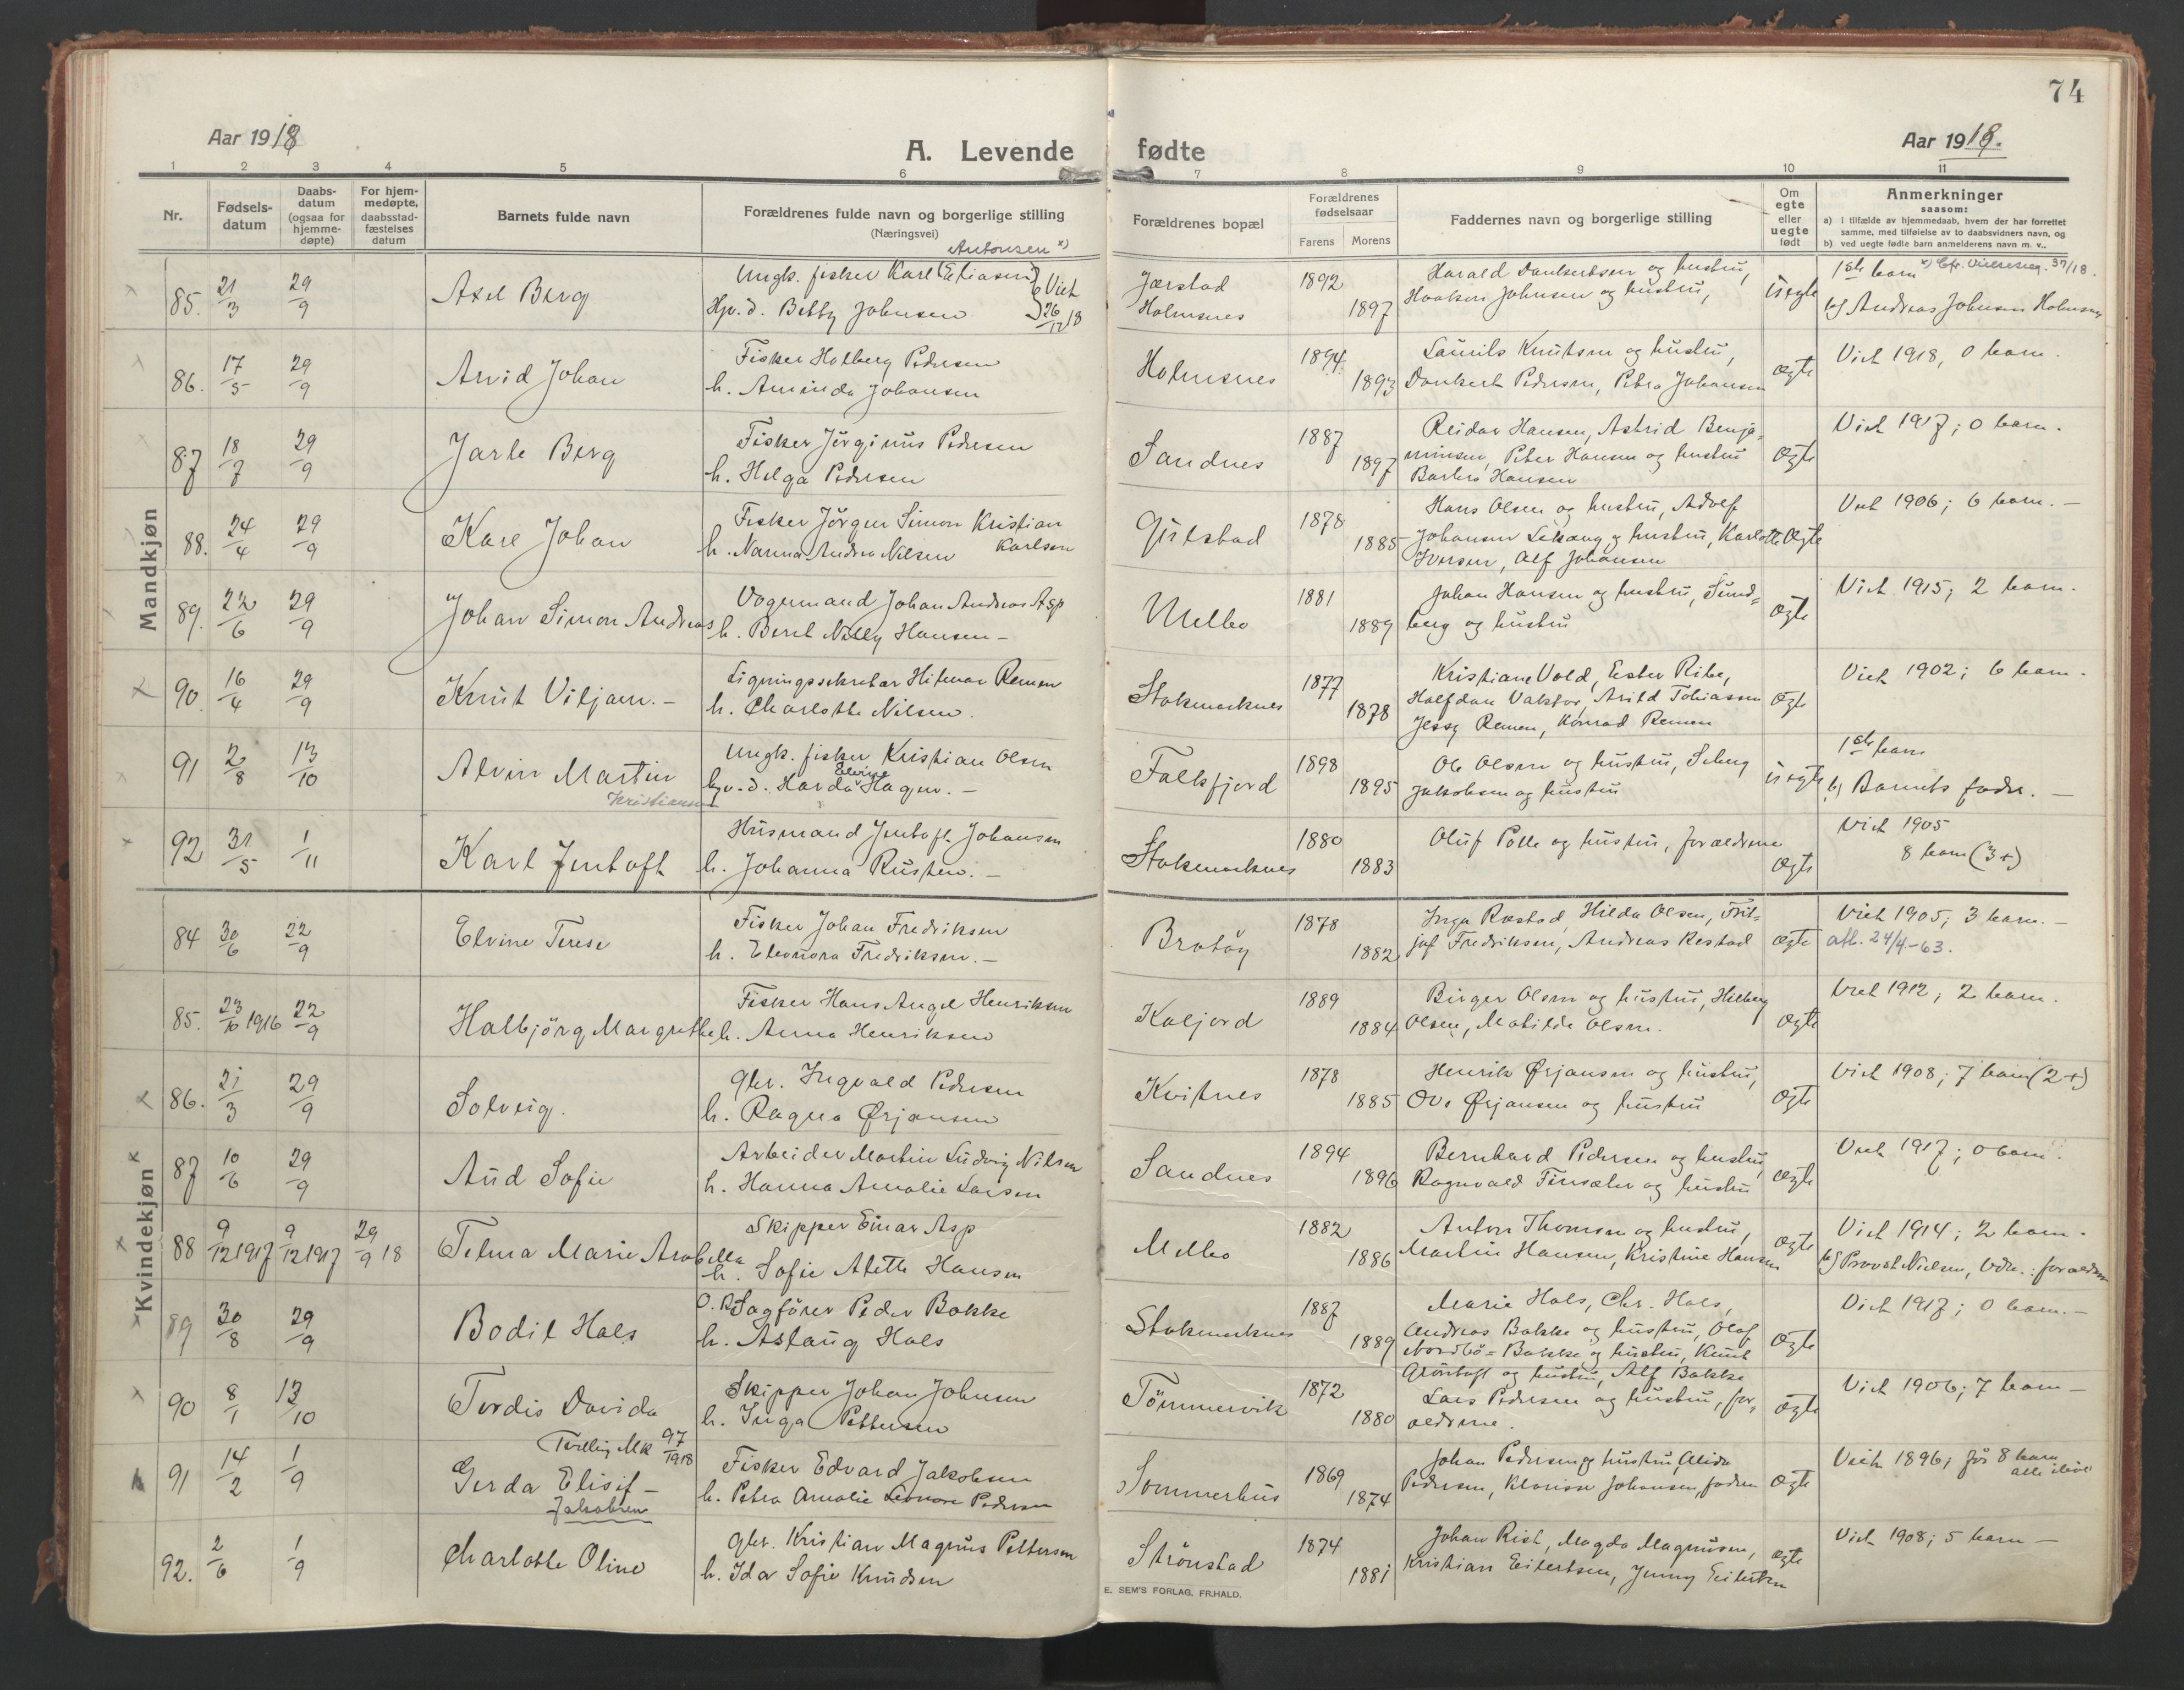 74
Aar 1918
A. Levende fødte
Aar 1918.
1 2 3 4 5 6 7 8 9 10 11
Nr.
Fødsels-
datum
Daabs-
datum
(ogsaa for
hjemme-
døpte)
For hjem-
medøpte,
daabsstad-
fæstelses
datum
Barnets fulde navn
Forældrenes fulde navn og borgerlige stilling
(Næringsvei)
Forældrenes bopæl
Forældrenes
fødselsaar
Farens Morens
Faddernes navn og borgerlige stilling
Om
egte
eller
uegte
født
Anmerkninger
saasom:
a) i tilfælde av hjemmedaab, hvem der har forrettet
samme, med tilføielse av to daabsvidners navn, og
b) ved uegte fødte barn anmelderens navn m. v..
Mandkjøn
Antonsen x)
85. 21/3 29/9 Axel Berg Ungk. fisker Karl (Eliasen) Viet Jærstad 1892 Harald Dankertsen og hustru, uegte 1ste barn x) Cfr. Vielsesreg. 37/18.
Hpv. d. Betty Johnsen 26/12 18 Holmsnes 1897 Haakon Johnsen og hustru, b) Andreas Johnsen Holmsnes
86. 17/5 29/9 Arvid Johan Fisker Holberg Pedersen Holmsnes 1894 Laurits Knutsen og hustru, ægte Viet 1918, 0 barn.
h. Aminda Johansen 1893 Dankert Pedersen, Petra Johansen
87 18/7 29/9 Jarle Berg Fisker Jörginus Pedersen Sandnes 1887 Reidar Hansen, Astrid Benja- ægte Viet 1917; 0 barn.
h. Helga Pedersen 1897 minsen, Peter Hansen og hustru
Barbro Hansen
88. 24/4 29/9 Kare Johan Fisker Jörgen Simon Kristian Gulstad 1878 Hans Olsen og hustru, Adolf Ægte Viet 1906; 6 barn. -
h. Nanna Andrea Nilsen Karlsen 1885 Johansen Leknang og hustru, Karlotte
Iversen, Alf Johansen
89. 22/6 29/9 Johan Simon Andreas Vognmand Johan Andreas Asp Melbo 1881 Johan Hansen og hustru, Sund= ægte Viet 1915; 2 barn.
h. Beret Nelly Hansen - 1889 berg og hustru
90. 16/4 29/9 Knut Viljam. - Ligningssekretær Hilmar Remen Stokmarknes 1877 Kristiane Vold, Ester Ribe, ægte Viet 1902; 6 barn.
h. Charlotte Nilsen. 1878 Halfdan Valstor, Arild Tobiassen
Jessy Remen, Konrad Remen
91 2/8 13/10 Alvin Martin Ungk. fisker Kristian Olsen Falkfjord 1898 Ole Olsen og hustru, uegte 1ste barn
Kristiansen hpv. d. Harda Elvine Hagen. - 1895 Jakobsen og hustru b) Barnets fader. -
92 31/5 1/11 Karl Jentoft Husmand Jentoft Johansen Stokmarknes 1880 Oluf Polle og hustru, forældrene ægte Viet 1905
h. Johanna Rusten. - 1883 8 barn (3+)
Kvindekjøn
84 30/6 22/9 Elvine Terese Fisker Johan Fredriksen Bratøy 1878 Inga Restad, Hilda Olsen, Frit= ægte Viet 1905; 3 barn. -
h. Eleonora Fredriksen. - 1882 jof Fredriksen, Andreas Restad att. 24/4-63.
85. 23/10 1916 22/9 Halbjörg Margrethe Fisker Hans Angel Henriksen Kaljord 1889 Birger Olsen og hustru, Hilberg ægte Viet 1912; 2 barn.
h. Anna Henriksen 1884 Olsen, Matilde Olsen.
86. 21/3 29/9 Solveig. Gbr. Ingvald Pedersen Kvitnes 1878 Henrik Ørjansen og hustru, ægte Viet 1908; 7 barn (2+)
h. Ragna Ørjansen 1885 Ove Ørjansen og hustru
87 10/6 29/9 Aud Sofie Arbeider Martin Ludvig Nilsen Sandnes 1894 Bernhard Pedersen og hustru, ægte Viet 1917; 0 barn.
h. Hanna Amalie Larsen 1896 Ragnvald Finsæter og hustru
88 9/12 1917 9/12 1917 29/9 18 Telma Marie Arabella Skipper Einar Asp Melbo 1882 Anton Thomsen og hustru, ægte Viet 1914; 2 barn.
h. Sofie Alette Hansen 1886 Martin Hansen, Kristine Hansen b) Provst Nielsen, Vidn.: forældrene
89 30/8 29/9 Bodil Hals O.R. Sagförer Peder Bakke Stokmarknes 1887 Marie Hals, Chr. Hals, ægte Viet 1917; 0 barn. -
h. Aslaug Hals 1889 Andreas Bakke og hustru, Olaf
Nordbö-Bakke og hustru, Knut
Gröntoft og hustru, Alf Bakke
90 8/1 13/10 Tordis Davida Skipper Johan Johnsen Tömmervik 1872 Lars Pedersen og hustru, for, ægte Viet 1906; 7 barn -
h. Inga Pettersen 1880 ældrene.
Tvilling Mk 97/1918
91 14/2 1/9 Gerda Elisif - Fisker Edvard Jakobsen Sommerhus 1869 Johan Pedersen og hustru, Alida ægte Viet 1896, før 8 barn
Jakobsen h. Petra Amalie Leonore Pedersen 1874 Pedersen, Klarisse Johansen, faderen alle ilive
92. 2/6 1/9 Charlotte Oline Gbr. Kristian Magnus Pettersen Strönstad 1874 Johan Rist, Magda Magnusen, ægte Viet 1908; 5 barn -
h. Ida Sofie Knudsen 1881 Kristian Eilertsen, Jenny Eilertsen
E. SEM'S FORLAG, FR.HALD.